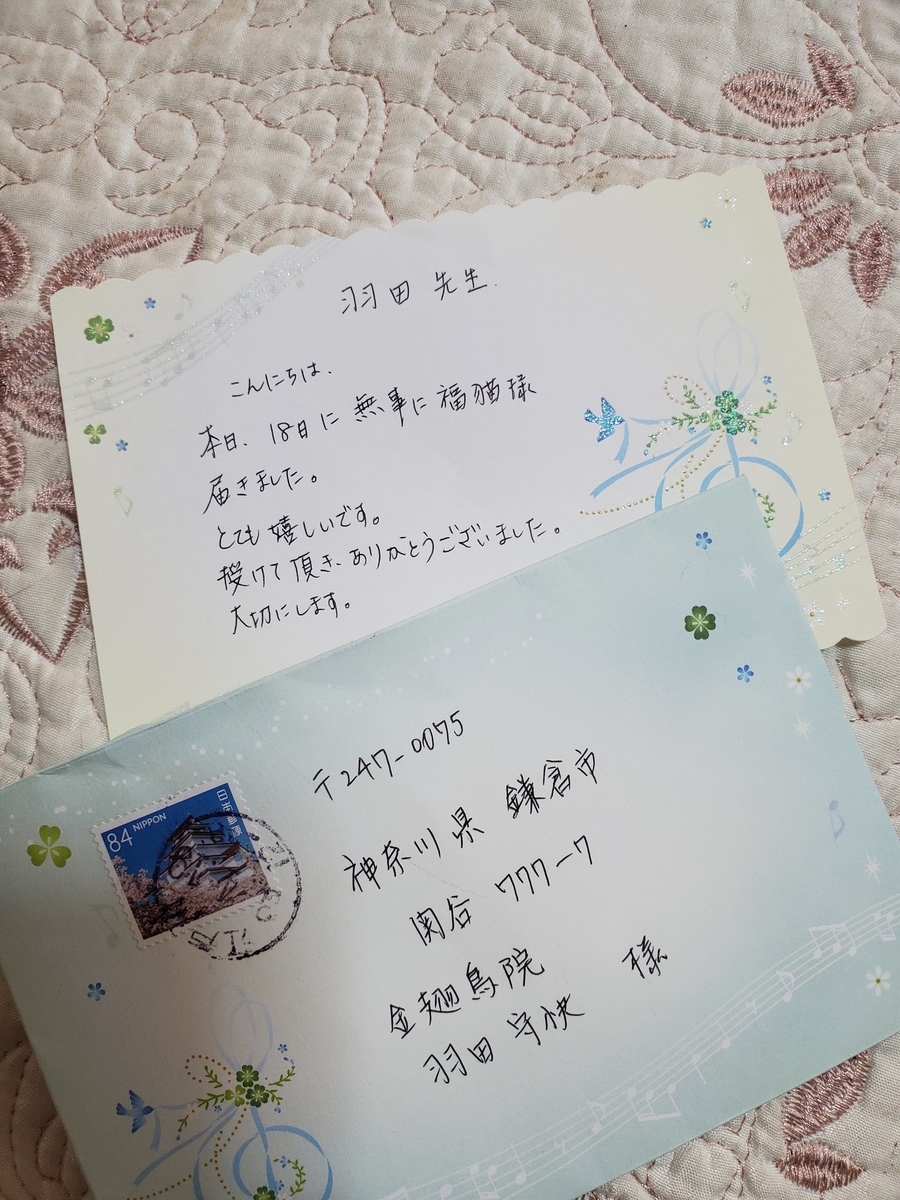 羽田 先生.
こんにちは、
本日、18日に 無事に 福猫様
届きました。
とても 嬉しいです。
授けて 頂き、ありがとうございました。
大切にします。
〒247-0075
神奈川県 鎌倉市
関谷 777-7
金翅鳥院
羽田 守快 様
84 NIPPON
日本郵便